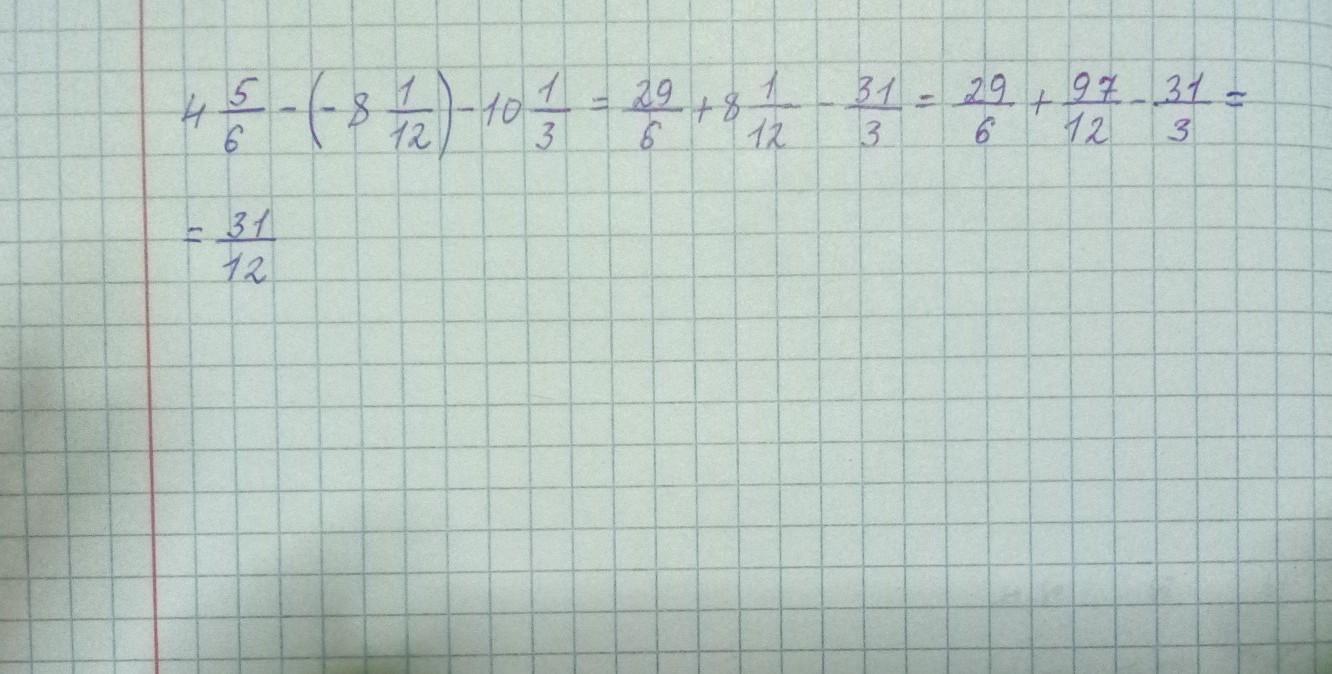 4 5/6 - (- 8 1/12) - 10 1/3 = 29/6 + 8 1/12 - 31/3 = 29/6 + 97/12 - 31/3 =
= 31/12